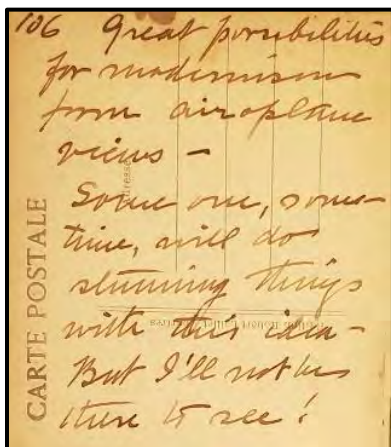 106 Great possibilities
for modernism
from airoplane
views –
Some one, some-
time, will do
stunning things
with this idea –
But I'll not be
there to see!
CARTE POSTALE